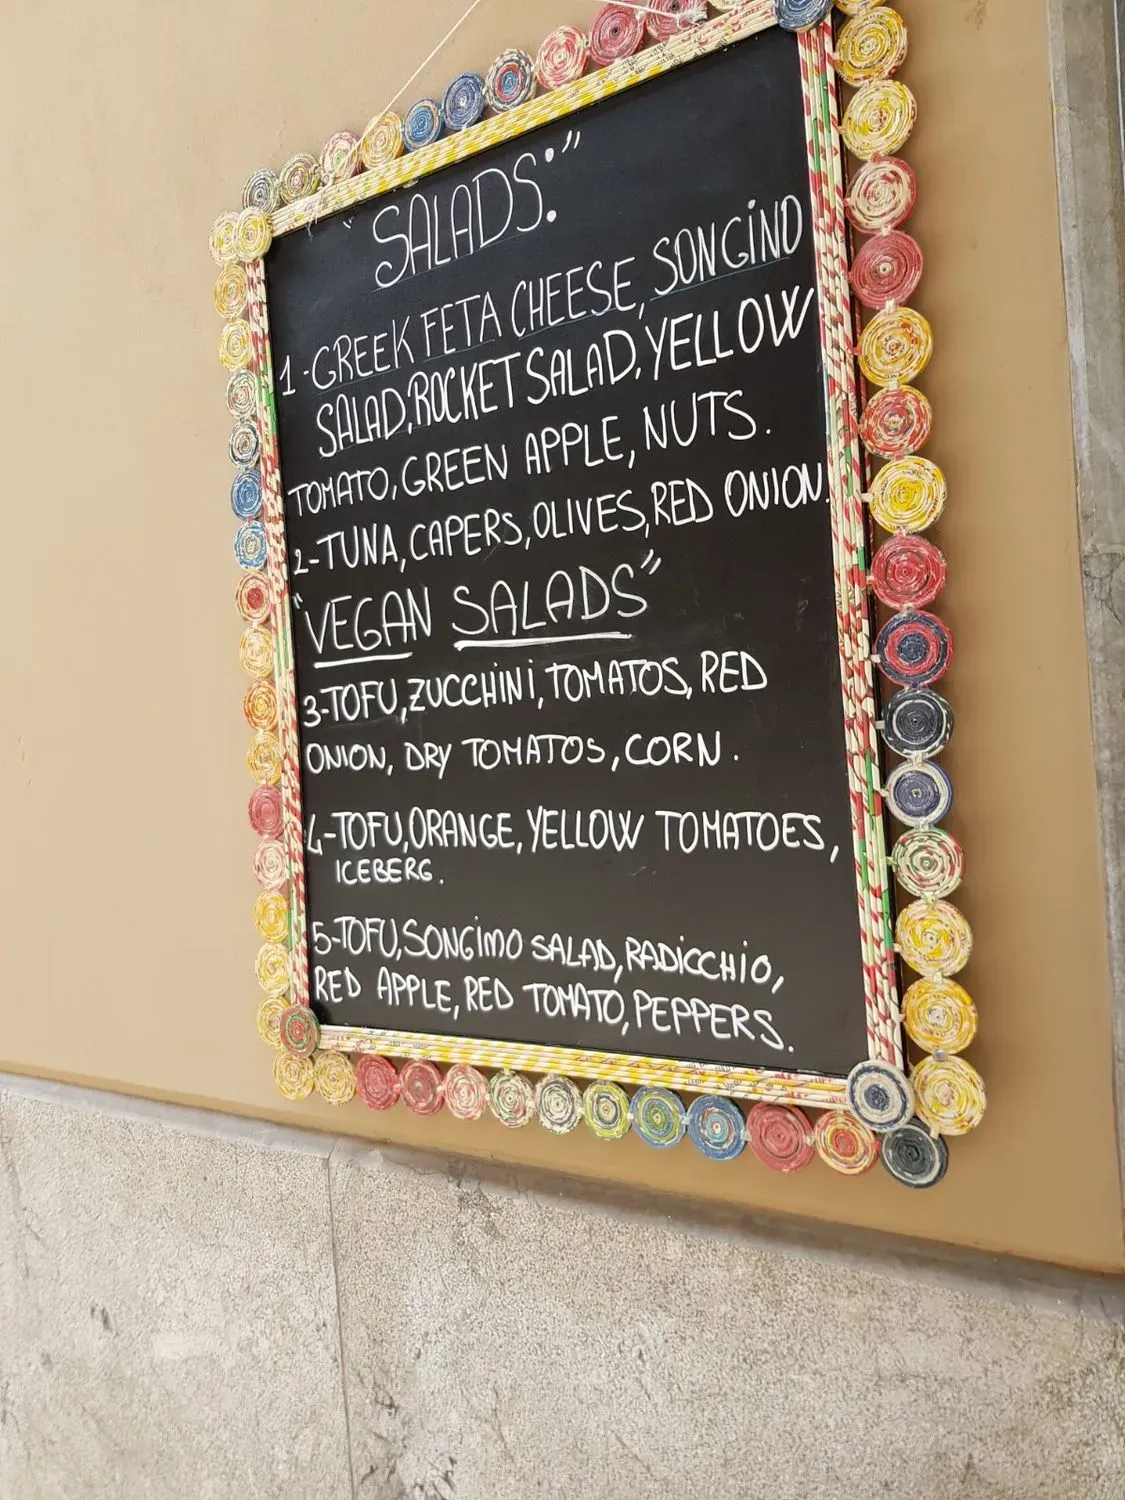 "SALADS:"
1-GREEK FETA CHEESE, SONGINO
SALAD, ROCKET SALAD, YELLOW
TOMATO, GREEN APPLE, NUTS.
2-TUNA, CAPERS, OLIVES, RED ONION.
"VEGAN SALADS"
3-TOFU, ZUCCHINI, TOMATOS, RED
ONION, DRY TOMATOS, CORN.
4-TOFU, ORANGE, YELLOW TOMATOES,
ICEBERG.
5-TOFU, SONGIMO SALAD, RADICCHIO,
RED APPLE, RED TOMATO, PEPPERS.